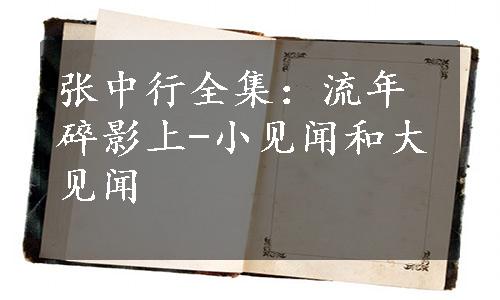 张中行全集：流年
碎影上-小见闻和大
见闻